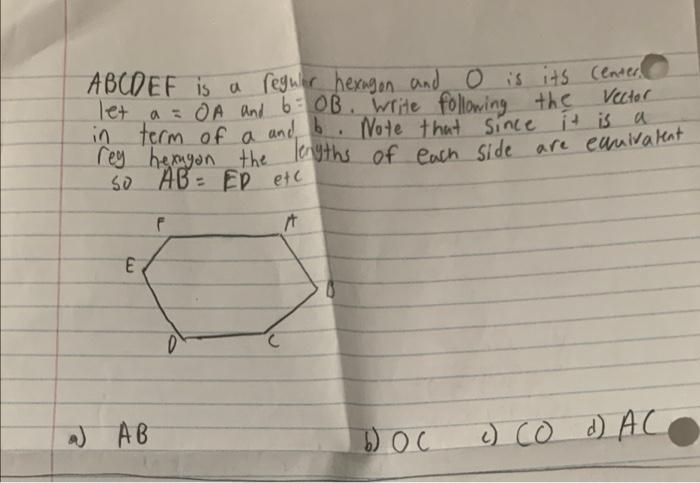 ABCDEF is a regular hexagon and O is its center.
let a = OA and b = OB. Write following the vector
in term of a and b. Note that since it is a
reg hexagon the lengths of each side are equivalent
so AB = ED etc
F A
E
B
D C
a) AB b) OC c) CO d) AC